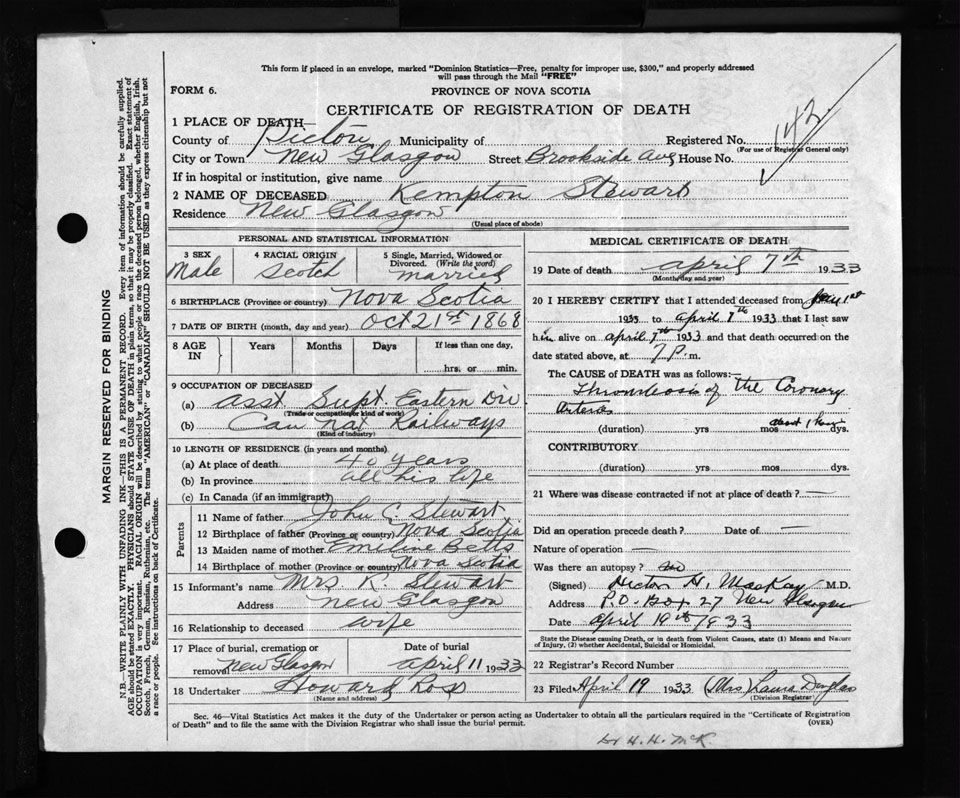 This form if placed in an envelope, marked "Dominion Statistics—Free, penalty for improper use, $300," and properly addressed
will pass through the Mail "FREE"
FORM 6.
PROVINCE OF NOVA SCOTIA
CERTIFICATE OF REGISTRATION OF DEATH
142
1 PLACE OF DEATH—
County of Pictou Municipality of Registered No.
(For use of Registrar General only)
City or Town New Glasgow Street Brookside Ave House No.
If in hospital or institution, give name
2 NAME OF DECEASED Kempton Stewart
Residence New Glasgow
(Usual place of abode)
PERSONAL AND STATISTICAL INFORMATION
3 SEX Male
4 RACIAL ORIGIN Scotch
5 Single, Married, Widowed or Divorced. (Write the word) married
6 BIRTHPLACE (Province or country) Nova Scotia
7 DATE OF BIRTH (month, day and year) Oct 21st 1868
8 AGE IN Years Months Days If less than one day, hrs. or min.
9 OCCUPATION OF DECEASED
(a) Asst Supt. Eastern Div.
(Trade or occupation or kind of work)
(b) Can Nat Railways
(Kind of industry)
10 LENGTH OF RESIDENCE (in years and months)
(a) At place of death 40 years
(b) In province all his life
(c) In Canada (if an immigrant)
Parents
11 Name of father John C Stewart
12 Birthplace of father (Province or country) Nova Scotia
13 Maiden name of mother Emiline Betts
14 Birthplace of mother (Province or country) Nova Scotia
15 Informant's name Mrs. K. Stewart
Address New Glasgow
16 Relationship to deceased wife
17 Place of burial, cremation or removal New Glasgow
Date of burial April 11 1933
18 Undertaker Howard Ross
(Name and address)
MEDICAL CERTIFICATE OF DEATH
19 Date of death April 7th 1933
(Month, day and year)
20 I HEREBY CERTIFY that I attended deceased from Jany 1st
1933 to April 7th 1933 that I last saw
him alive on April 7th 1933 and that death occurred on the
date stated above, at 7 P. m.
The CAUSE of DEATH was as follows:—
Thrombosis of the Coronary
Arteries
(duration) yrs mos about 1 hour dys.
CONTRIBUTORY
(duration) yrs mos dys.
21 Where was disease contracted if not at place of death? —
Did an operation precede death? Date of —
Nature of operation —
Was there an autopsy?
(Signed) Hector H. MacKay M.D.
Address P.O. Box 27 New Glasgow
Date April 19th 1933
State the Disease causing Death, or in death from Violent Causes, state (1) Means and Nature
of Injury, (2) whether Accidental, Suicidal or Homicidal.
22 Registrar's Record Number
23 Filed April 19 1933 (Mrs) Laura Douglas
(Division Registrar)
Sec. 46—Vital Statistics Act makes it the duty of the Undertaker or person acting as Undertaker to obtain all the particulars required in the "Certificate of Registration
of Death" and to file the same with the Division Registrar who shall issue the burial permit.
(OVER)
Dr H. H. McK.
MARGIN RESERVED FOR BINDING
N.B.—WRITE PLAINLY WITH UNFADING INK—THIS IS A PERMANENT RECORD. Every item of information should be carefully supplied.
AGE should be stated EXACTLY. PHYSICIANS should STATE CAUSE OF DEATH in plain terms, so that it may be properly classified. Exact statement of
OCCUPATION is very important. RACIAL ORIGIN will be described by stating to what people or race the deceased person belonged, whether English, Irish,
Scotch, French, German, Russian, Ruthenian, etc. The terms "AMERICAN" or "CANADIAN" SHOULD NOT BE USED as they express citizenship but not
a race or people. See instructions on back of Certificate.